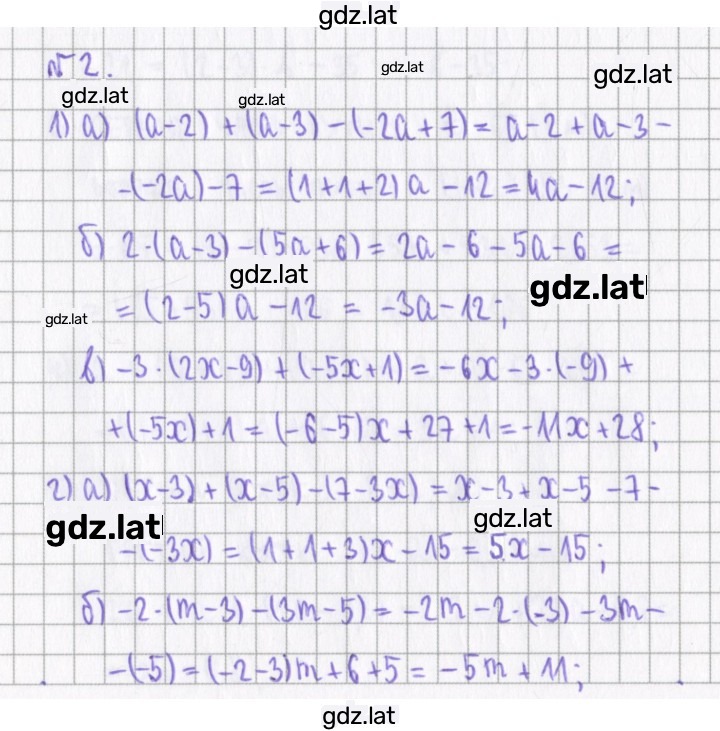 gdz.lat
№ 2.
gdz.lat
gdz.lat
gdz.lat
gdz.lat
1) а) (a-2) + (a-3) - (-2a+7) = a-2+a-3-
-(-2a)-7 = (1+1+2)a -12 = 4a-12;
б) 2·(a-3) - (5a+6) = 2a - 6 - 5a - 6 =
gdz.lat
gdz.lat
gdz.lat
= (2-5)a -12 = -3a-12;
в) -3·(2x-9) + (-5x+1) = -6x -3·(-9) +
+(-5x)+1 = (-6-5)x + 27 +1 = -11x+28;
2) а) (x-3) + (x-5) - (7-3x) = x-3+x-5 -7-
gdz.lat
gdz.lat
-(-3x) = (1+1+3)x - 15 = 5x - 15;
б) -2·(m-3) - (3m-5) = -2m -2·(-3) -3m-
-(-5) = (-2-3)m + 6 + 5 = -5m + 11;
gdz.lat